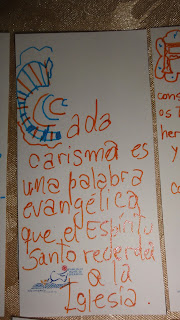 Cada
carisma es
una palabra
evangélica
que el Espíritu
Santo recuerda
a la
Iglesia.
cons
os
her
y